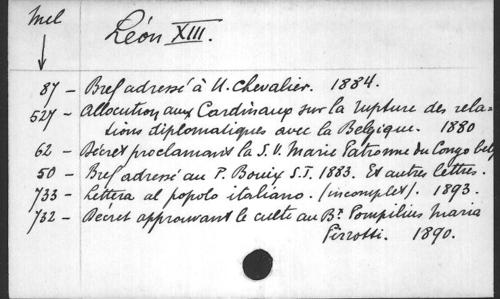 Mel
Léon XIII.
87 – Bref adressé à U. Chevalier. 1884.
527 – Allocution aux Cardinaux sur la rupture des rela-
tions diplomatiques avec la Belgique. 1880
62 – Décret proclamant la S. V. Marie Patronne du Congo belg
50 – Bref adressé au P. Bouix S.J. 1883. Et autres lettres.
733 – Lettera al popolo italiano. (incomplet). 1893.
732 – Décret approuvant le culte au Bx Pompilius Maria
Pirrotti. 1890.